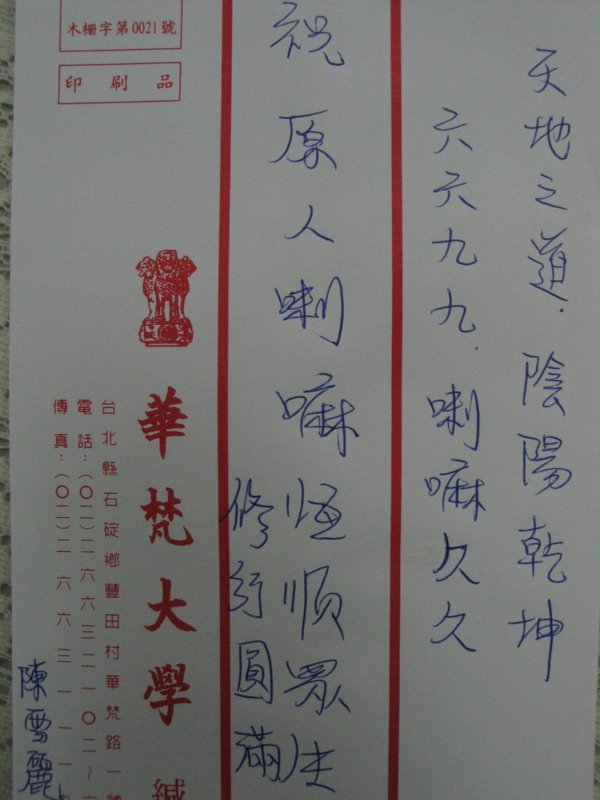 天地之道．陰陽乾坤
六六九九．喇嘛久久
祝原人喇嘛恆順眾生
修行圓滿
木柵字第0021號
印刷品
華梵大學 緘
台北縣石碇鄉豐田村華梵路一號
電話：（〇二）二六六三二一〇二～
傳真：（〇二）二六六三一一
陳雪麗